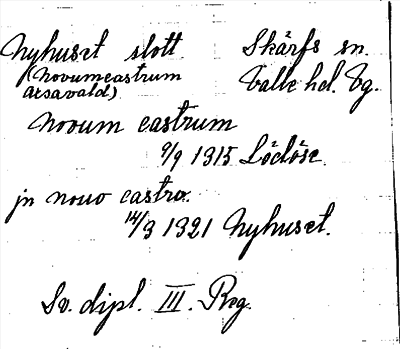 Nyhuset slott Skärfs sn.
(Novumcastrum Valle hd. Vg.
Axavald)
Novum castrum
9/9 1315 Lödöse.
jn nouo castro.
14/3 1321 Nyhuset.
Sv. dipl. III. Reg.